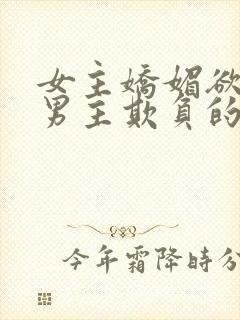 女主嬌媚欲
男主欺負的
今年霜降時分